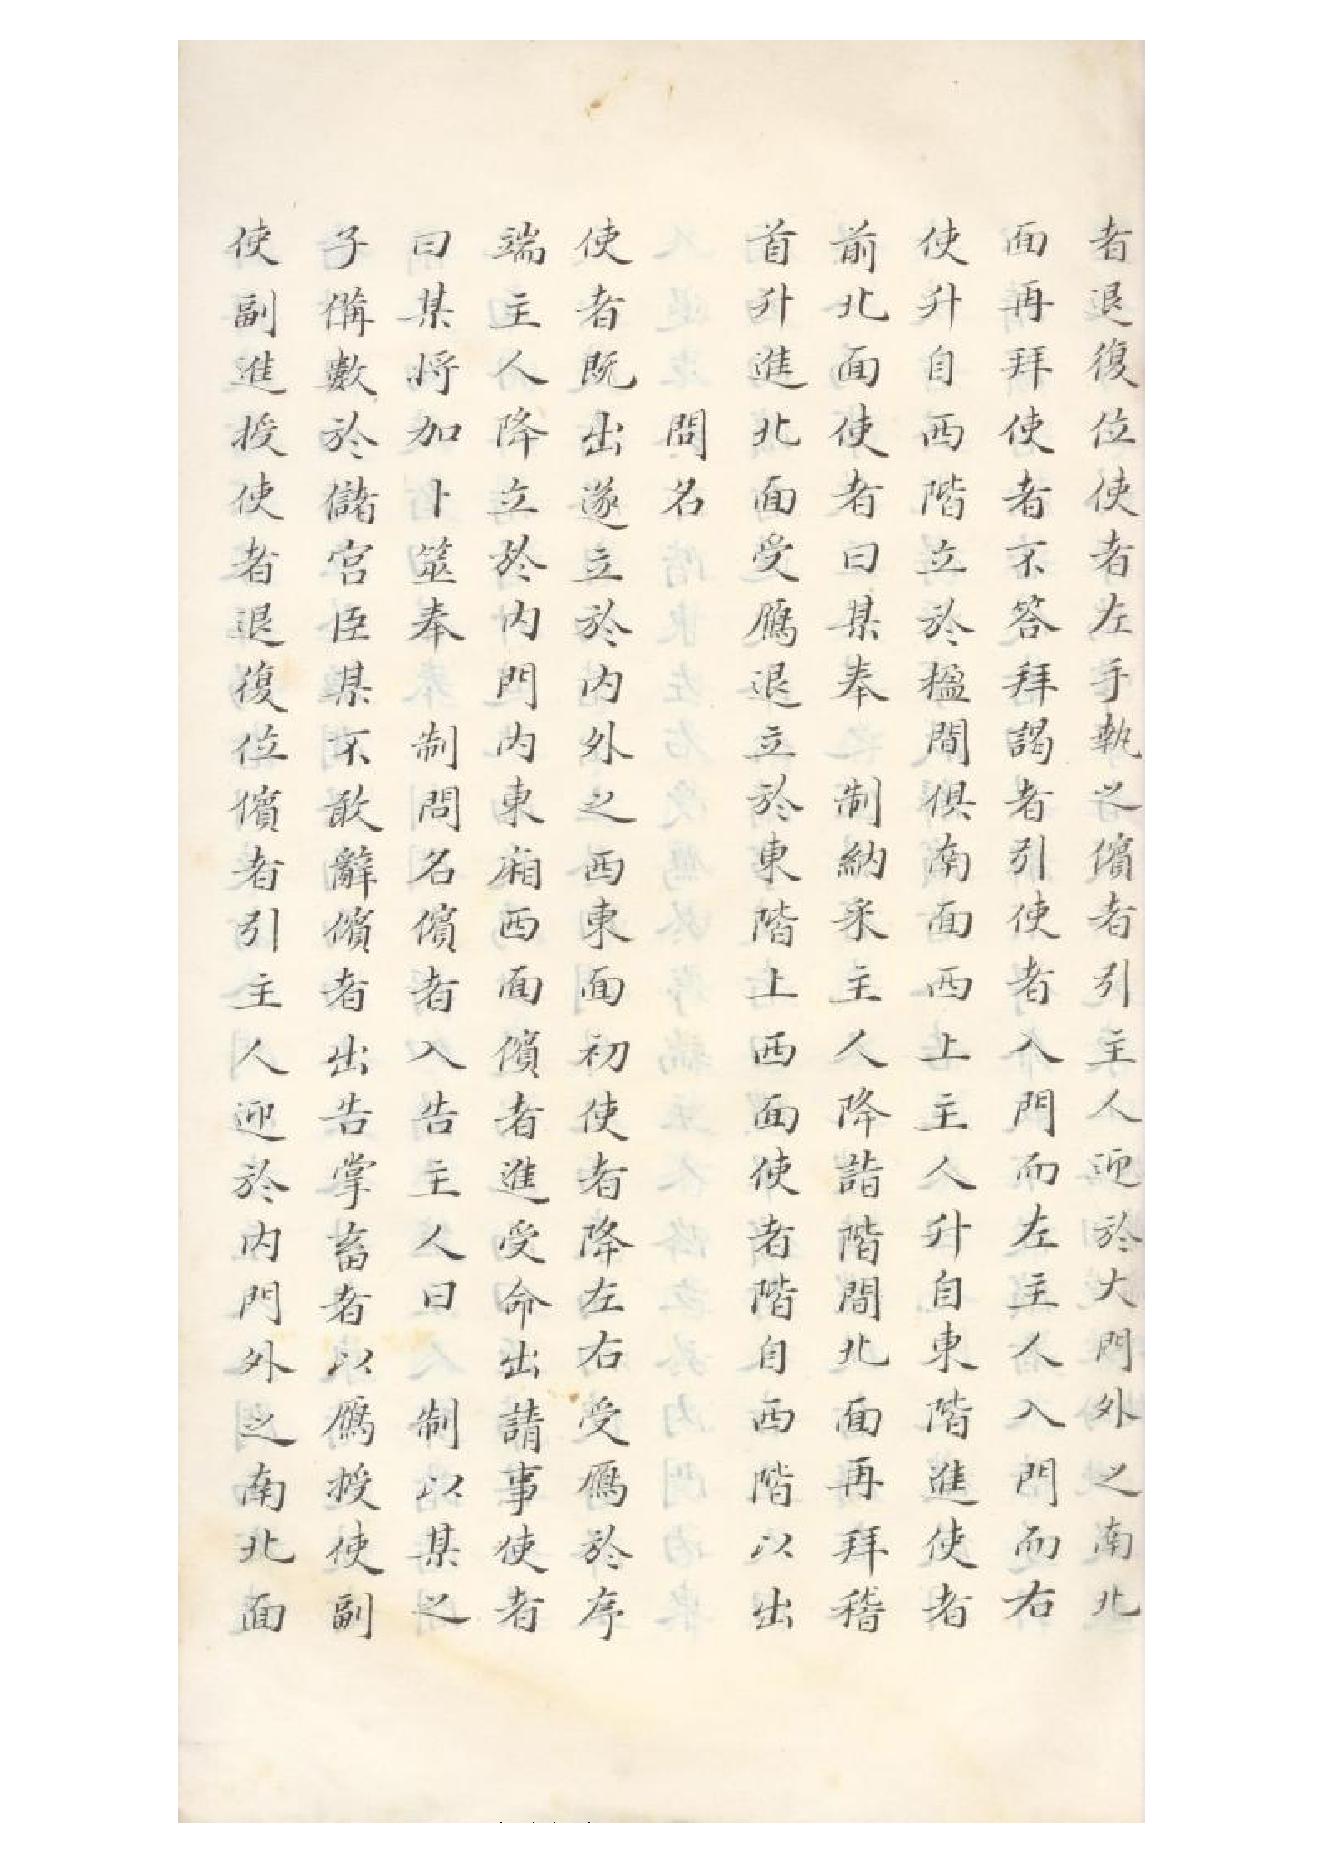 者退復位使者左手執之儐者引主人迎於大門外之南北
面再拜使者不答拜謁者引使者入門而左主人入門而右
使升自西階立於楹間俱南面西上主人升自東階進使者
前北面使者曰某奉　制納采主人降詣階間北面再拜稽
首升進北面受鴈退立於東階上西面使者階自西階以出
問名
使者既出遂立於內外之西東面初使者降左右受鴈於序
端主人降立於內門內東廂西面儐者進受命出請事使者
曰某將加卜筮奉　制問名儐者入告主人曰　制以某之
子備數於儲宮臣某不敢辭儐者出告掌畜者以鴈授使副
使副進授使者退復位儐者引主人迎於內門外之南北面